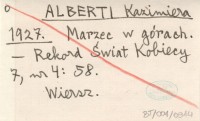 ALBERTI Kazimiera
1927. Marzec w górach.
— Rekord Świat Kobiecy
7, nr 4: 58.
Wiersz.